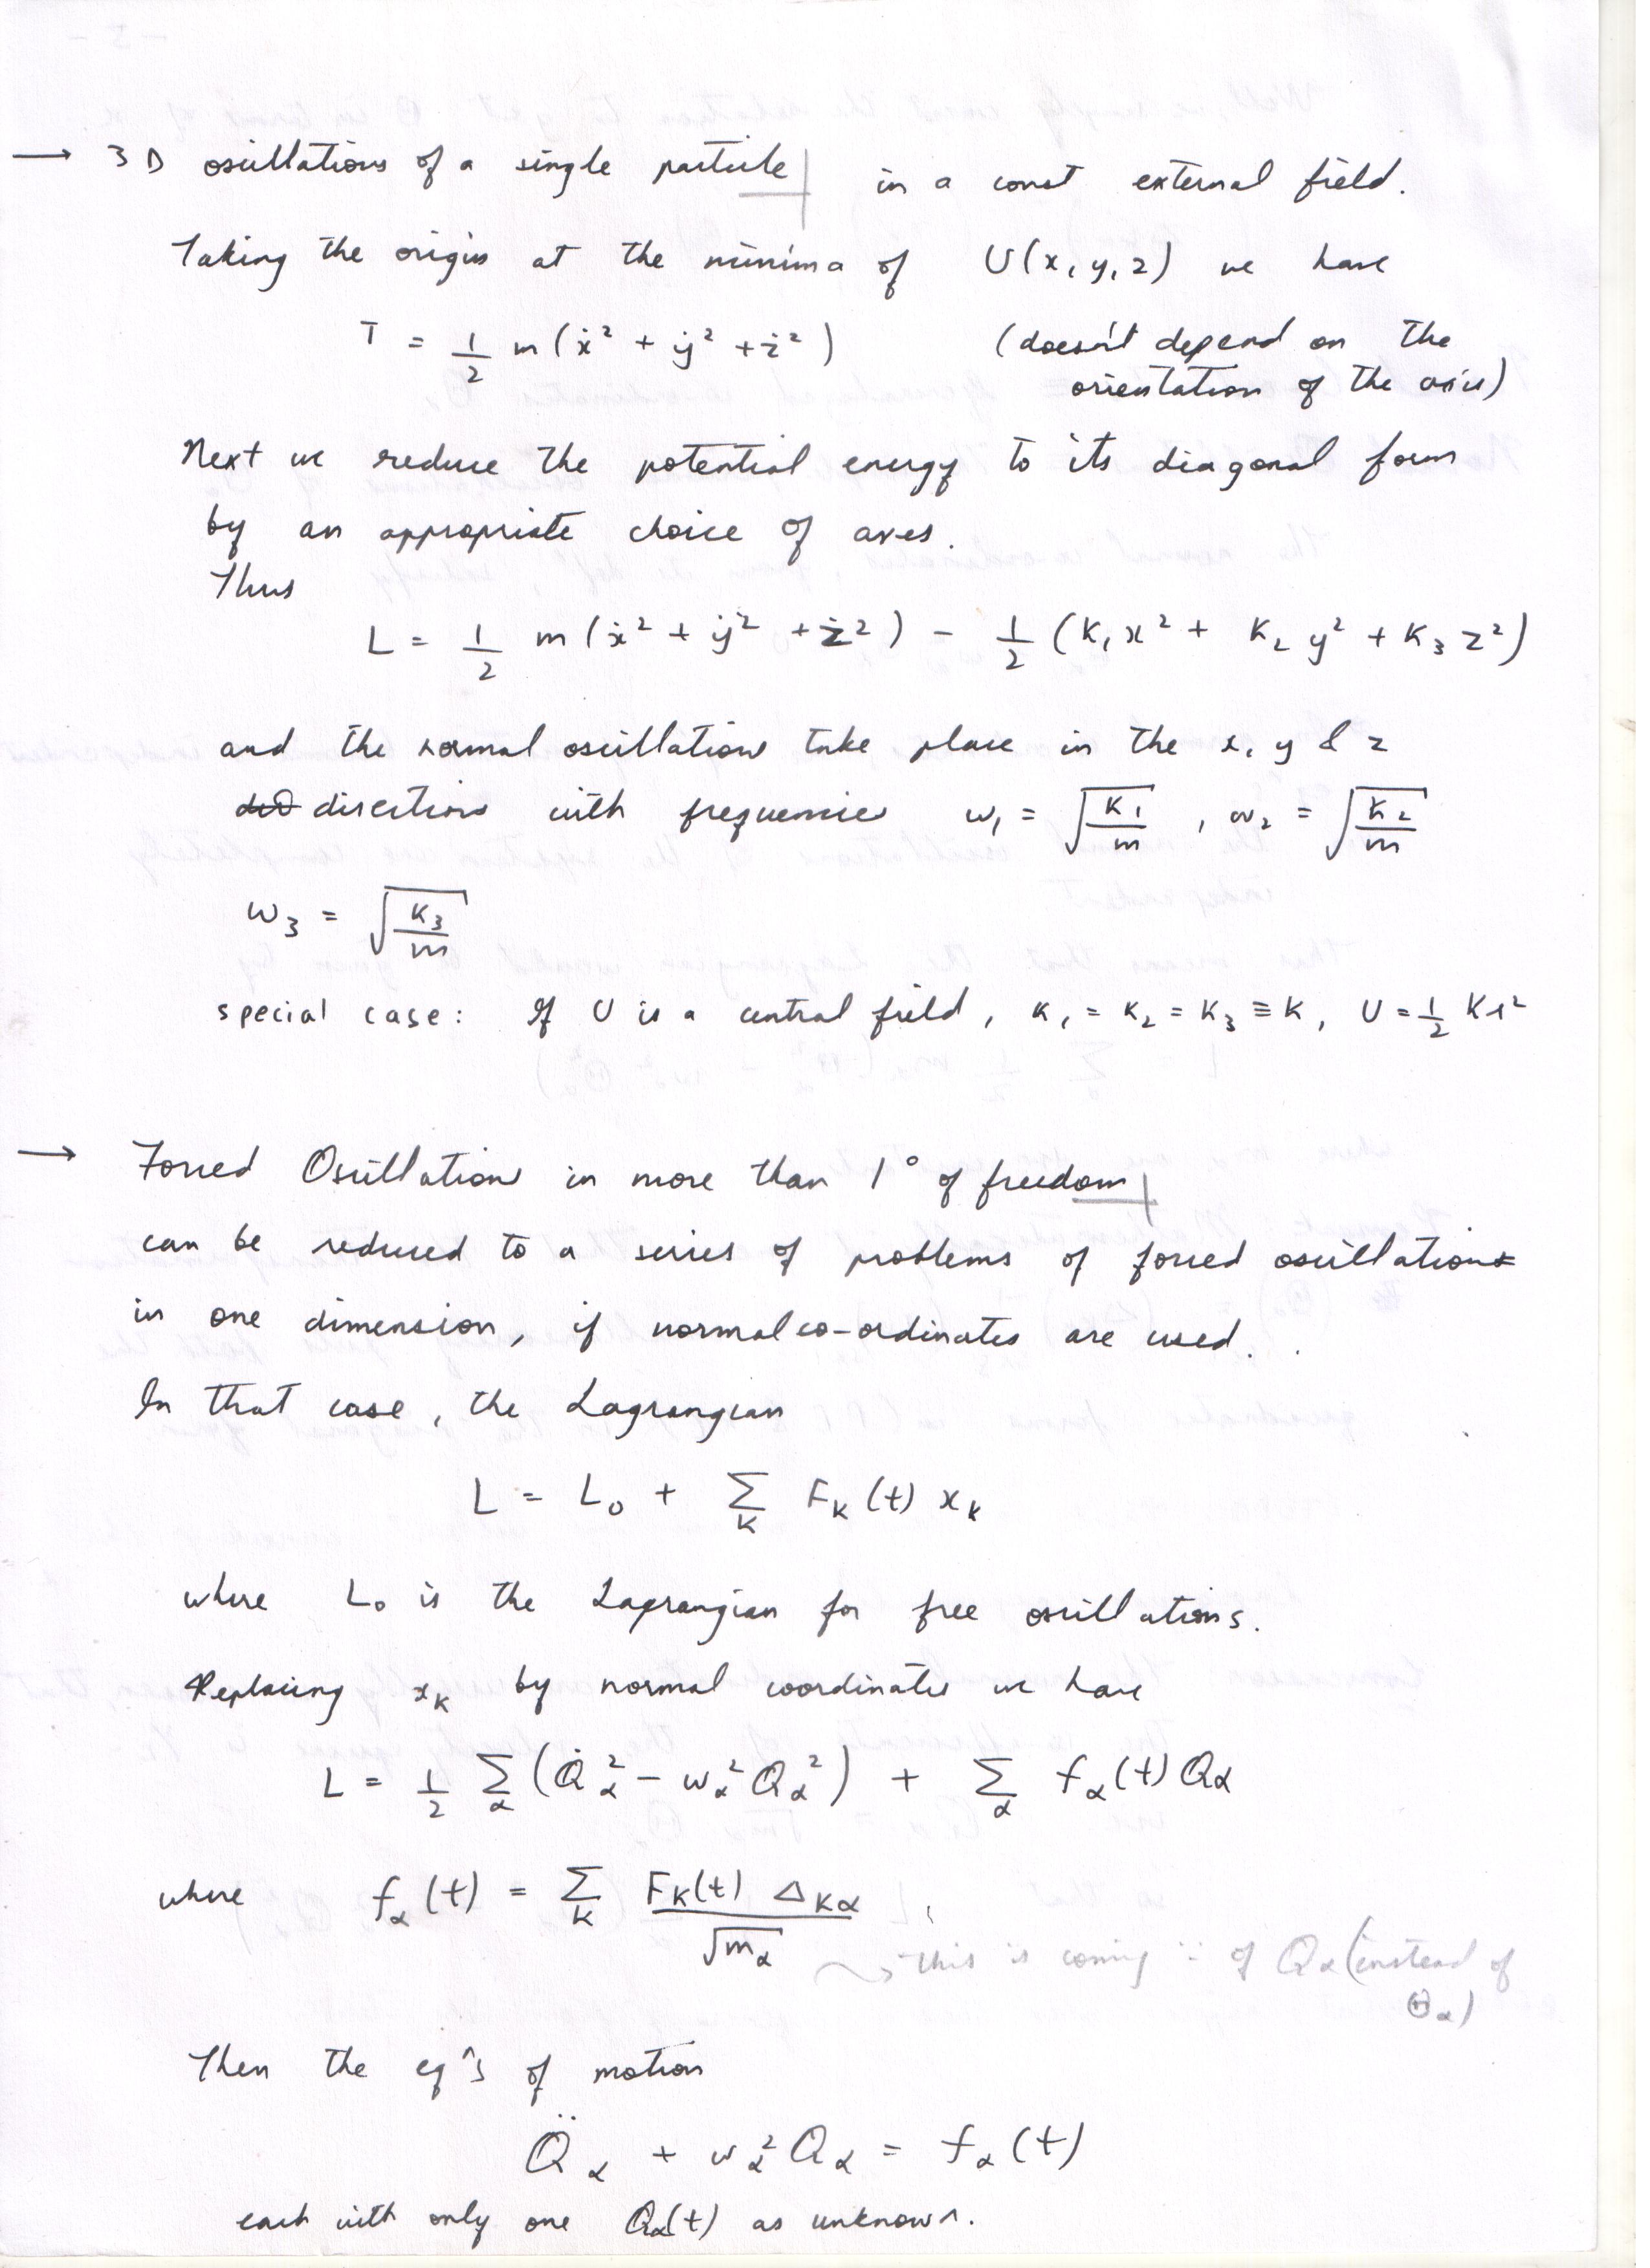 → 3D oscillations of a single particle in a const external field.
Taking the origin at the minima of U(x, y, z) we have
T = 1/2 m(ẋ² + ẏ² + ż²) (doesn't depend on the
orientation of the axis)
Next we reduce the potential energy to its diagonal form
by an appropriate choice of axes.
Thus
L = 1/2 m(ẋ² + ẏ² + ż²) - 1/2 (K₁x² + K₂y² + K₃z²)
and the normal oscillations take place in the x, y & z
directions with frequencies ω₁ = √(K₁/m) , ω₂ = √(K₂/m)
ω₃ = √(K₃/m)
special case: If U is a central field, K₁ = K₂ = K₃ ≡ K, U = 1/2 Kr²
→ Forced Oscillations in more than 1° of freedom
can be reduced to a series of problems of forced oscillations
in one dimension, if normal co-ordinates are used.
In that case, the Lagrangian
L = L₀ + Σ_K F_K(t) x_K
where L₀ is the Lagrangian for free oscillations.
Replacing x_K by normal coordinates we have
L = 1/2 Σ_α (Q̇_α² - ω_α² Q_α²) + Σ_α f_α(t) Q_α
where f_α(t) = Σ_K F_K(t) Δ_Kα / √m_α ,
→ this is coming ∵ of Q_α (instead of
Θ_α)
Then the eqⁿs of motion
Q̈_α + ω_α² Q_α = f_α(t)
each with only one Q_α(t) as unknown.